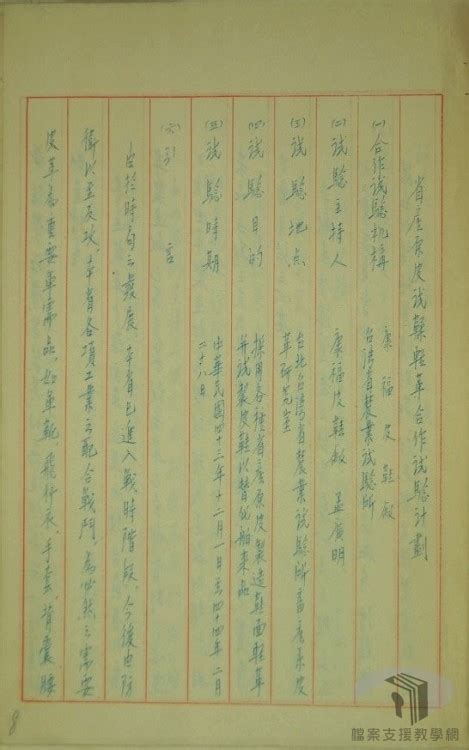 省產原皮試製輕革合作試驗計劃
(一)合作試驗机構　康福皮鞋廠
台灣省農業試驗所
(二)試驗主持人　康福皮鞋廠　孟廣明
(三)試驗地点　台北台灣省農業試驗所畜產系皮
革研究室
(四)試驗目的　採用各種省產原皮製造鞋面輕革
并試製皮鞋以替代舶來品
(五)試驗時期　中華民國四十三年十二月一日至四十四年二月
二十八日
(六)引言
由於時局之發展本省已進入戰時階段、今後由防
衛以至反攻、本省各項工業之配合戰鬥、為必然之需要
皮革為重要軍需品、如軍靴、飛行衣、手套、背囊腰
8
檔案支援教學網